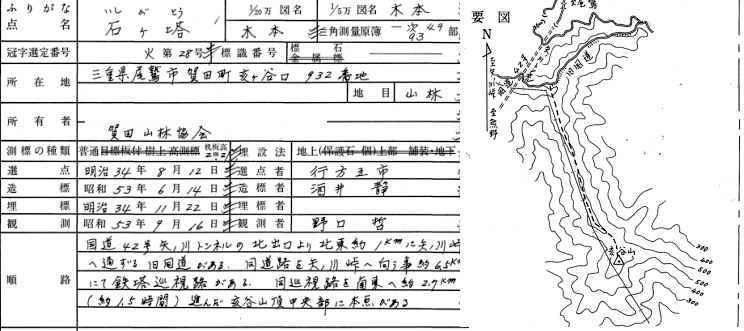 ふりがな いしがとう 1/20万図名 1/5万図名 木本
点名 石ヶ塔 木本 三角測量原簿 一次49 93部
冠字選定番号 火第28号 標識番号 標石 金属標
所在地 三重県尾鷲市賀田町亥ヶ谷口932番地
地目 山林
所有者 賀田山林協会
測標の種類 普通 目標板付 樹上 高測標 埋設法 地上(保護石 個)上部 舗装・地下
選点 明治34年8月12日 選点者 行方主市
造標 昭和53年6月14日 造標者 酒井静
埋標 明治34年11月22日 埋標者
観測 昭和53年9月16日 観測者 野口哲
順路
国道42号矢ノ川トンネルの北出口より北東約1kmに矢ノ川峠
へ通ずる旧国道がある。同道路を矢ノ川峠へ向う事約6.5km
にて鉄塔巡視路がある。同巡視路を南東へ約2.7km
(約1.5時間)進んだ亥谷山頂中央部に本点がある
要図
N
至尾鷲
国道42号
旧国道
至熊野
亥谷山
300
400
500
600
500
400
300